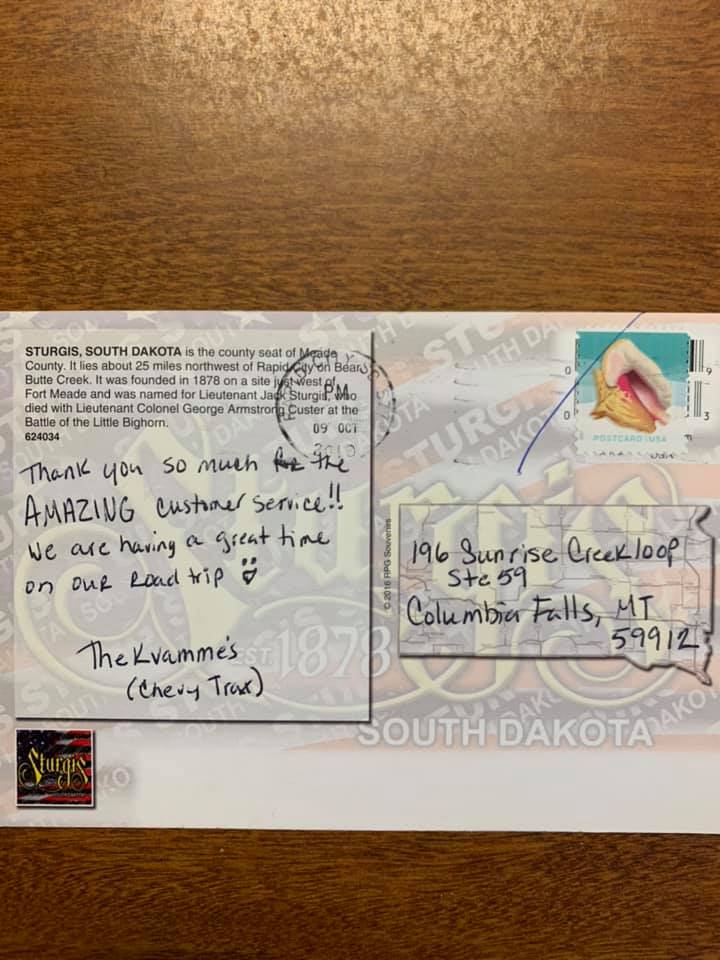 STURGIS, SOUTH DAKOTA is the county seat of Meade
County. It lies about 25 miles northwest of Rapid City on Bear
Butte Creek. It was founded in 1878 on a site just west of
Fort Meade and was named for Lieutenant Jack Sturgis, who
died with Lieutenant Colonel George Armstrong Custer at the
Battle of the Little Bighorn.
624034
PM
09 OCT
Thank you so much for the
AMAZING customer service!!
We are having a great time
on our road trip
The Kvamme's
(Chevy Trax)
Sturgis
POSTCARD USA
© 2016 RPG Souvenirs
196 Sunrise Creek loop
Ste 59
Columbia Falls, MT
59912
Sturgis
EST. 1878
SOUTH DAKOTA